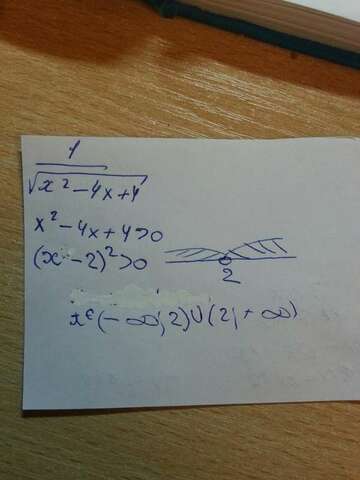 1
√x²-4x+4
x²-4x+4>0
(x-2)²>0
2
x∈(-∞;2)∪(2;+∞)